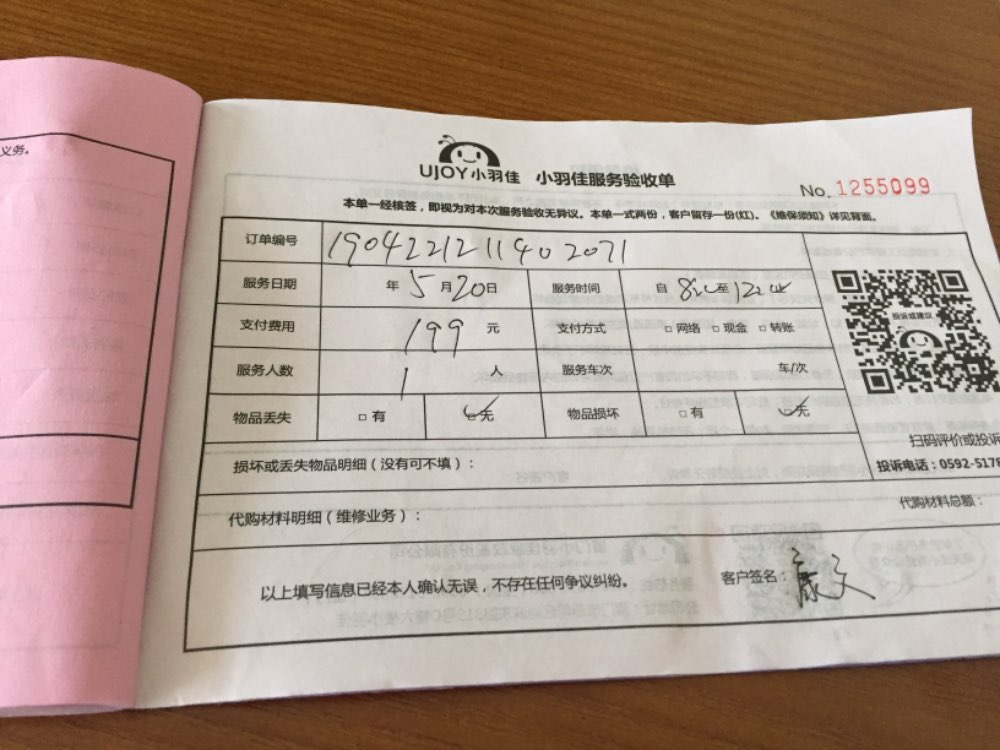 义务。
UJOY小羽佳 小羽佳服务验收单
No. 1255099
本单一经核签，即视为对本次服务验收无异议。本单一式两份，客户留存一份(红)。《维保须知》详见背面。
订单编号 190422121140 2071
服务日期 年 5 月 20 日 服务时间 自 8:00 至 12:00
支付费用 199 元 支付方式 □网络 □现金 □转账
服务人数 1 人 服务车次 车/次
物品丢失 □有 ☑无 物品损坏 □有 ☑无
投诉或建议
扫码评价或投诉
投诉电话：0592-5178
损坏或丢失物品明细（没有可不填）：
代购材料明细（维修业务）： 代购材料总额：
以上填写信息已经本人确认无误，不存在任何争议纠纷。 客户签名：